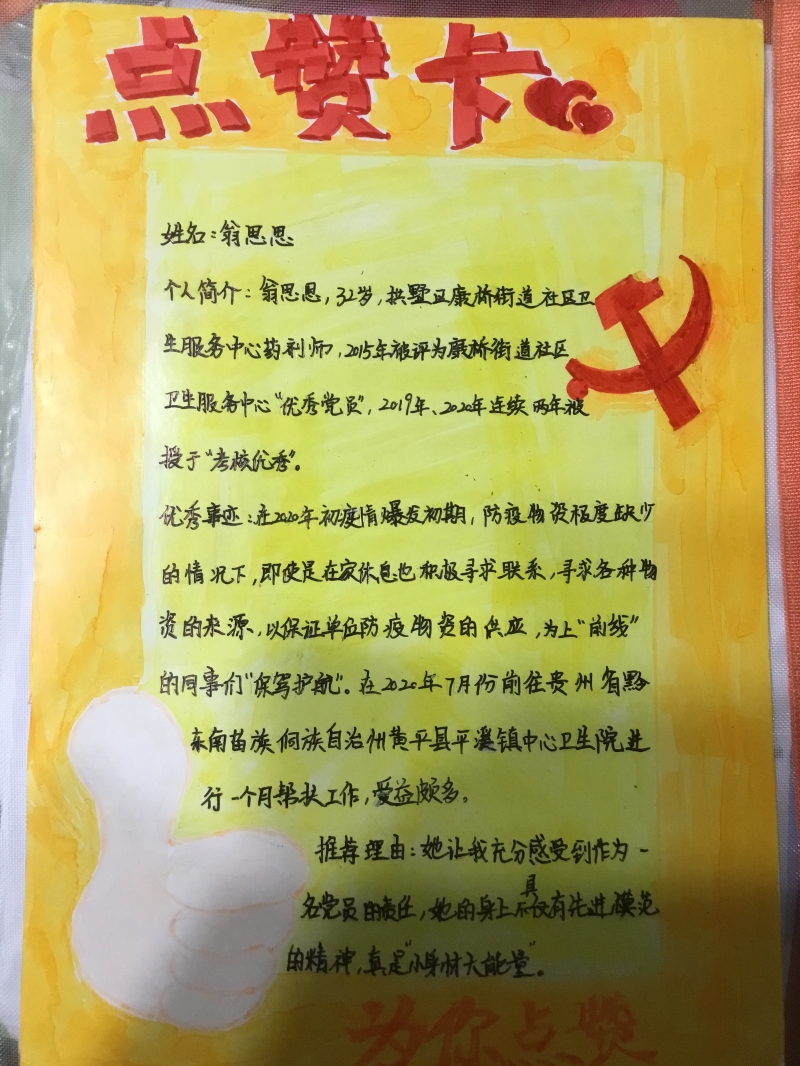 点赞卡
姓名：翁思思
个人简介：翁思思，32岁，拱墅区康桥街道社区卫
生服务中心药剂师，2015年被评为康桥街道社区
卫生服务中心“优秀党员”，2019年、2020年连续两年被
授于“考核优秀”。
优秀事迹：在2020年初疫情爆发初期，防疫物资极度缺少
的情况下，即使是在家休息也积极寻求联系，寻求各种物
资的来源，以保证单位防疫物资的供应，为上“前线”
的同事们“保驾护航”。在2020年7月份前往贵州省黔
东南苗族侗族自治州黄平县平溪镇中心卫生院进
行一个月帮扶工作，受益颇多。
推荐理由：她让我充分感受到作为一
名党员的责任，她的身上不仅具有先进模范
的精神，真是“小身材大能量”。
为你点赞